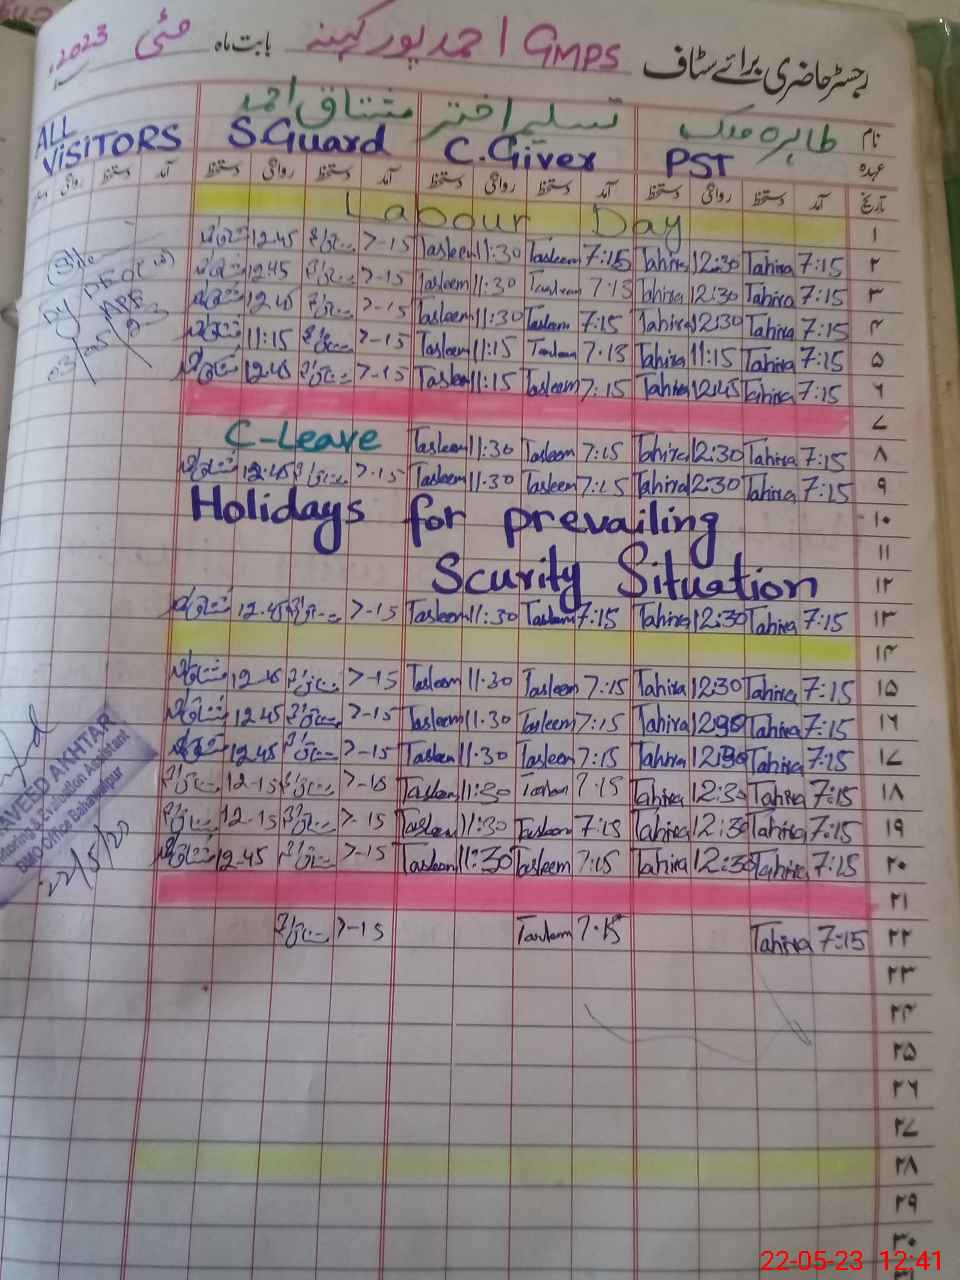 رجسٹر حاضری برائے سٹاف GMPS احمد پور کہنہ بابت ماہ مئی 2023
نام طاہرہ ملک تسلیم اختر مشتاق احمد ALL VISITORS
عہدہ PST C.Giver S.Guard
تاریخ آمد دستخط روانگی دستخط آمد دستخط روانگی دستخط آمد دستخط روانگی دستخط آمد دستخط روانگی
۱ Labour Day
۲ 7:15 Tahira 12:30 Tahira 7:15 Tasleem 11:30 Tasleem 7-15 مشتاق 12.45 مشتاق
۳ 7:15 Tahira 12:30 Tahira 7:15 Tasleem 11:30 Tasleem 7-15 مشتاق 12.45 مشتاق
۴ 7:15 Tahira 12:30 Tahira 7:15 Tasleem 11:30 Tasleem 7-15 مشتاق 12.45 مشتاق
۵ 7:15 Tahira 11:15 Tahira 7:15 Tasleem 11:15 Tasleem 7-15 مشتاق 11:15 مشتاق
۶ 7:15 Tahira 12:45 Tahira 7:15 Tasleem 11:15 Tasleem 7-15 مشتاق 12.45 مشتاق
۷
۸ 7:15 Tahira 12:30 Tahira 7:15 Tasleem 11:30 Tasleem C-Leave
۹ 7:15 Tahira 12:30 Tahira 7:15 Tasleem 11:30 Tasleem 7-15 مشتاق 12.45 مشتاق
۱۰ Holidays for prevailing
۱۱
۱۲ Scurity Situation
۱۳ 7:15 Tahira 12:30 Tahira 7:15 Tasleem 11:30 Tasleem 7-15 مشتاق 12.45 مشتاق
۱۴
۱۵ 7:15 Tahira 12:30 Tahira 7:15 Tasleem 11:30 Tasleem 7-15 مشتاق 12.45 مشتاق
۱۶ 7:15 Tahira Tahira 7:15 Tasleem 11:30 Tasleem 7-15 مشتاق 12.45 مشتاق
۱۷ 7:15 Tahira Tahira 7:15 Tasleem 11:30 Tasleem 7-15 مشتاق 12.45 مشتاق
۱۸ 7:15 Tahira 12:30 Tahira 7:15 Tasleem 11:30 Tasleem 7-15 مشتاق 12-15 مشتاق
۱۹ 7:15 Tahira 12:30 Tahira 7:15 Tasleem 11:30 Tasleem 7-15 مشتاق 12-15 مشتاق
۲۰ 7:15 Tahira 12:30 Tahira 7:15 Tasleem 11:30 Tasleem 7-15 مشتاق 12-45 مشتاق
۲۱
۲۲ 7:15 Tahira 7:15 Tasleem 7-15 مشتاق
۲۳
۲۴
۲۵
۲۶
۲۷
۲۸
۲۹
۳۰
AVEED AKHTAR
Evaluation Assistant
DMO Office Bahawalpur
22/5/20
22-05-23 12:41